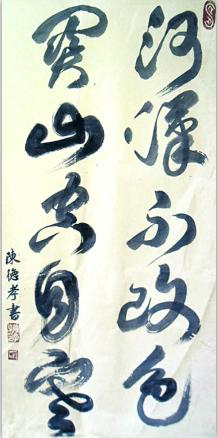 河漢不改色
關山空自寒
陳德孝書